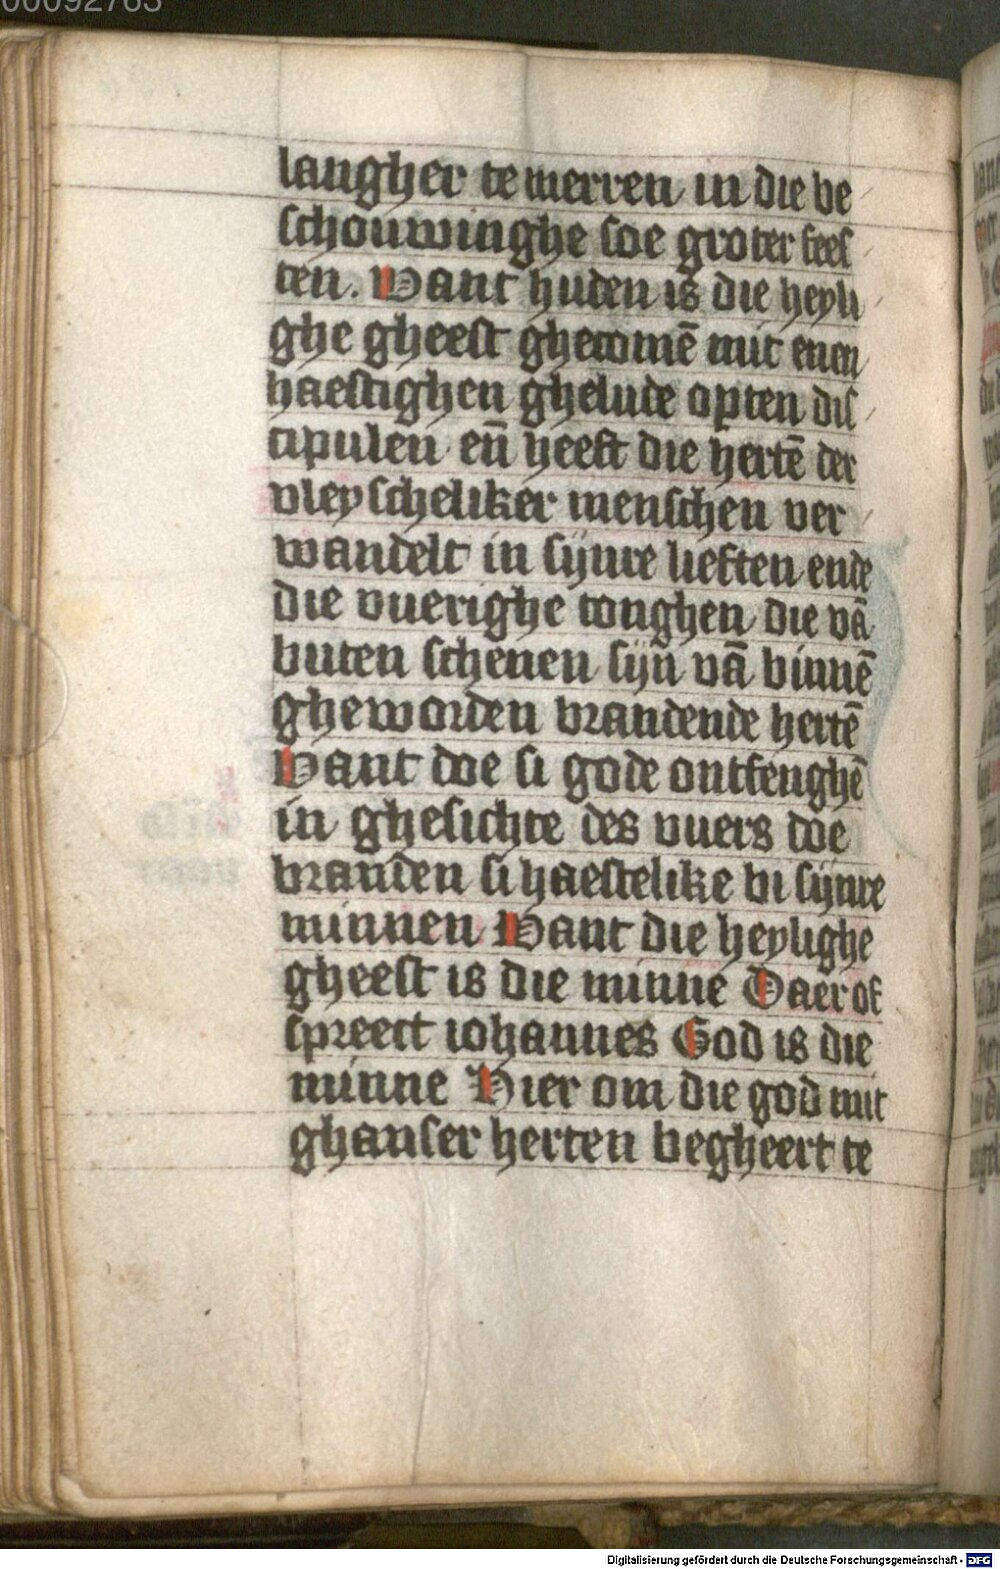 00092763
langher te merren in die be
schouwinghe soe groter fees
ten. Want huden is die heyli
ghe gheest ghecomē mit enen
haestighen ghelude opten dis
cipulen eñ heeft die hertē der
vleyscheliker menschen ver
wandelt in sijnre lieften ende
die vuerighe tonghen die vā
buten schenen sijn vā binnē
gheworden brandende hertē
Want doe si gode ontfenghē
in ghesichte des vuers doe
branden si haestelike bi sijnre
minnen Want die heylighe
gheest is die minne Daer of
spreect iohannes God is die
minne Hier om die god mit
ghanser herten begheert te
Digitalisierung gefördert durch die Deutsche Forschungsgemeinschaft - DFG